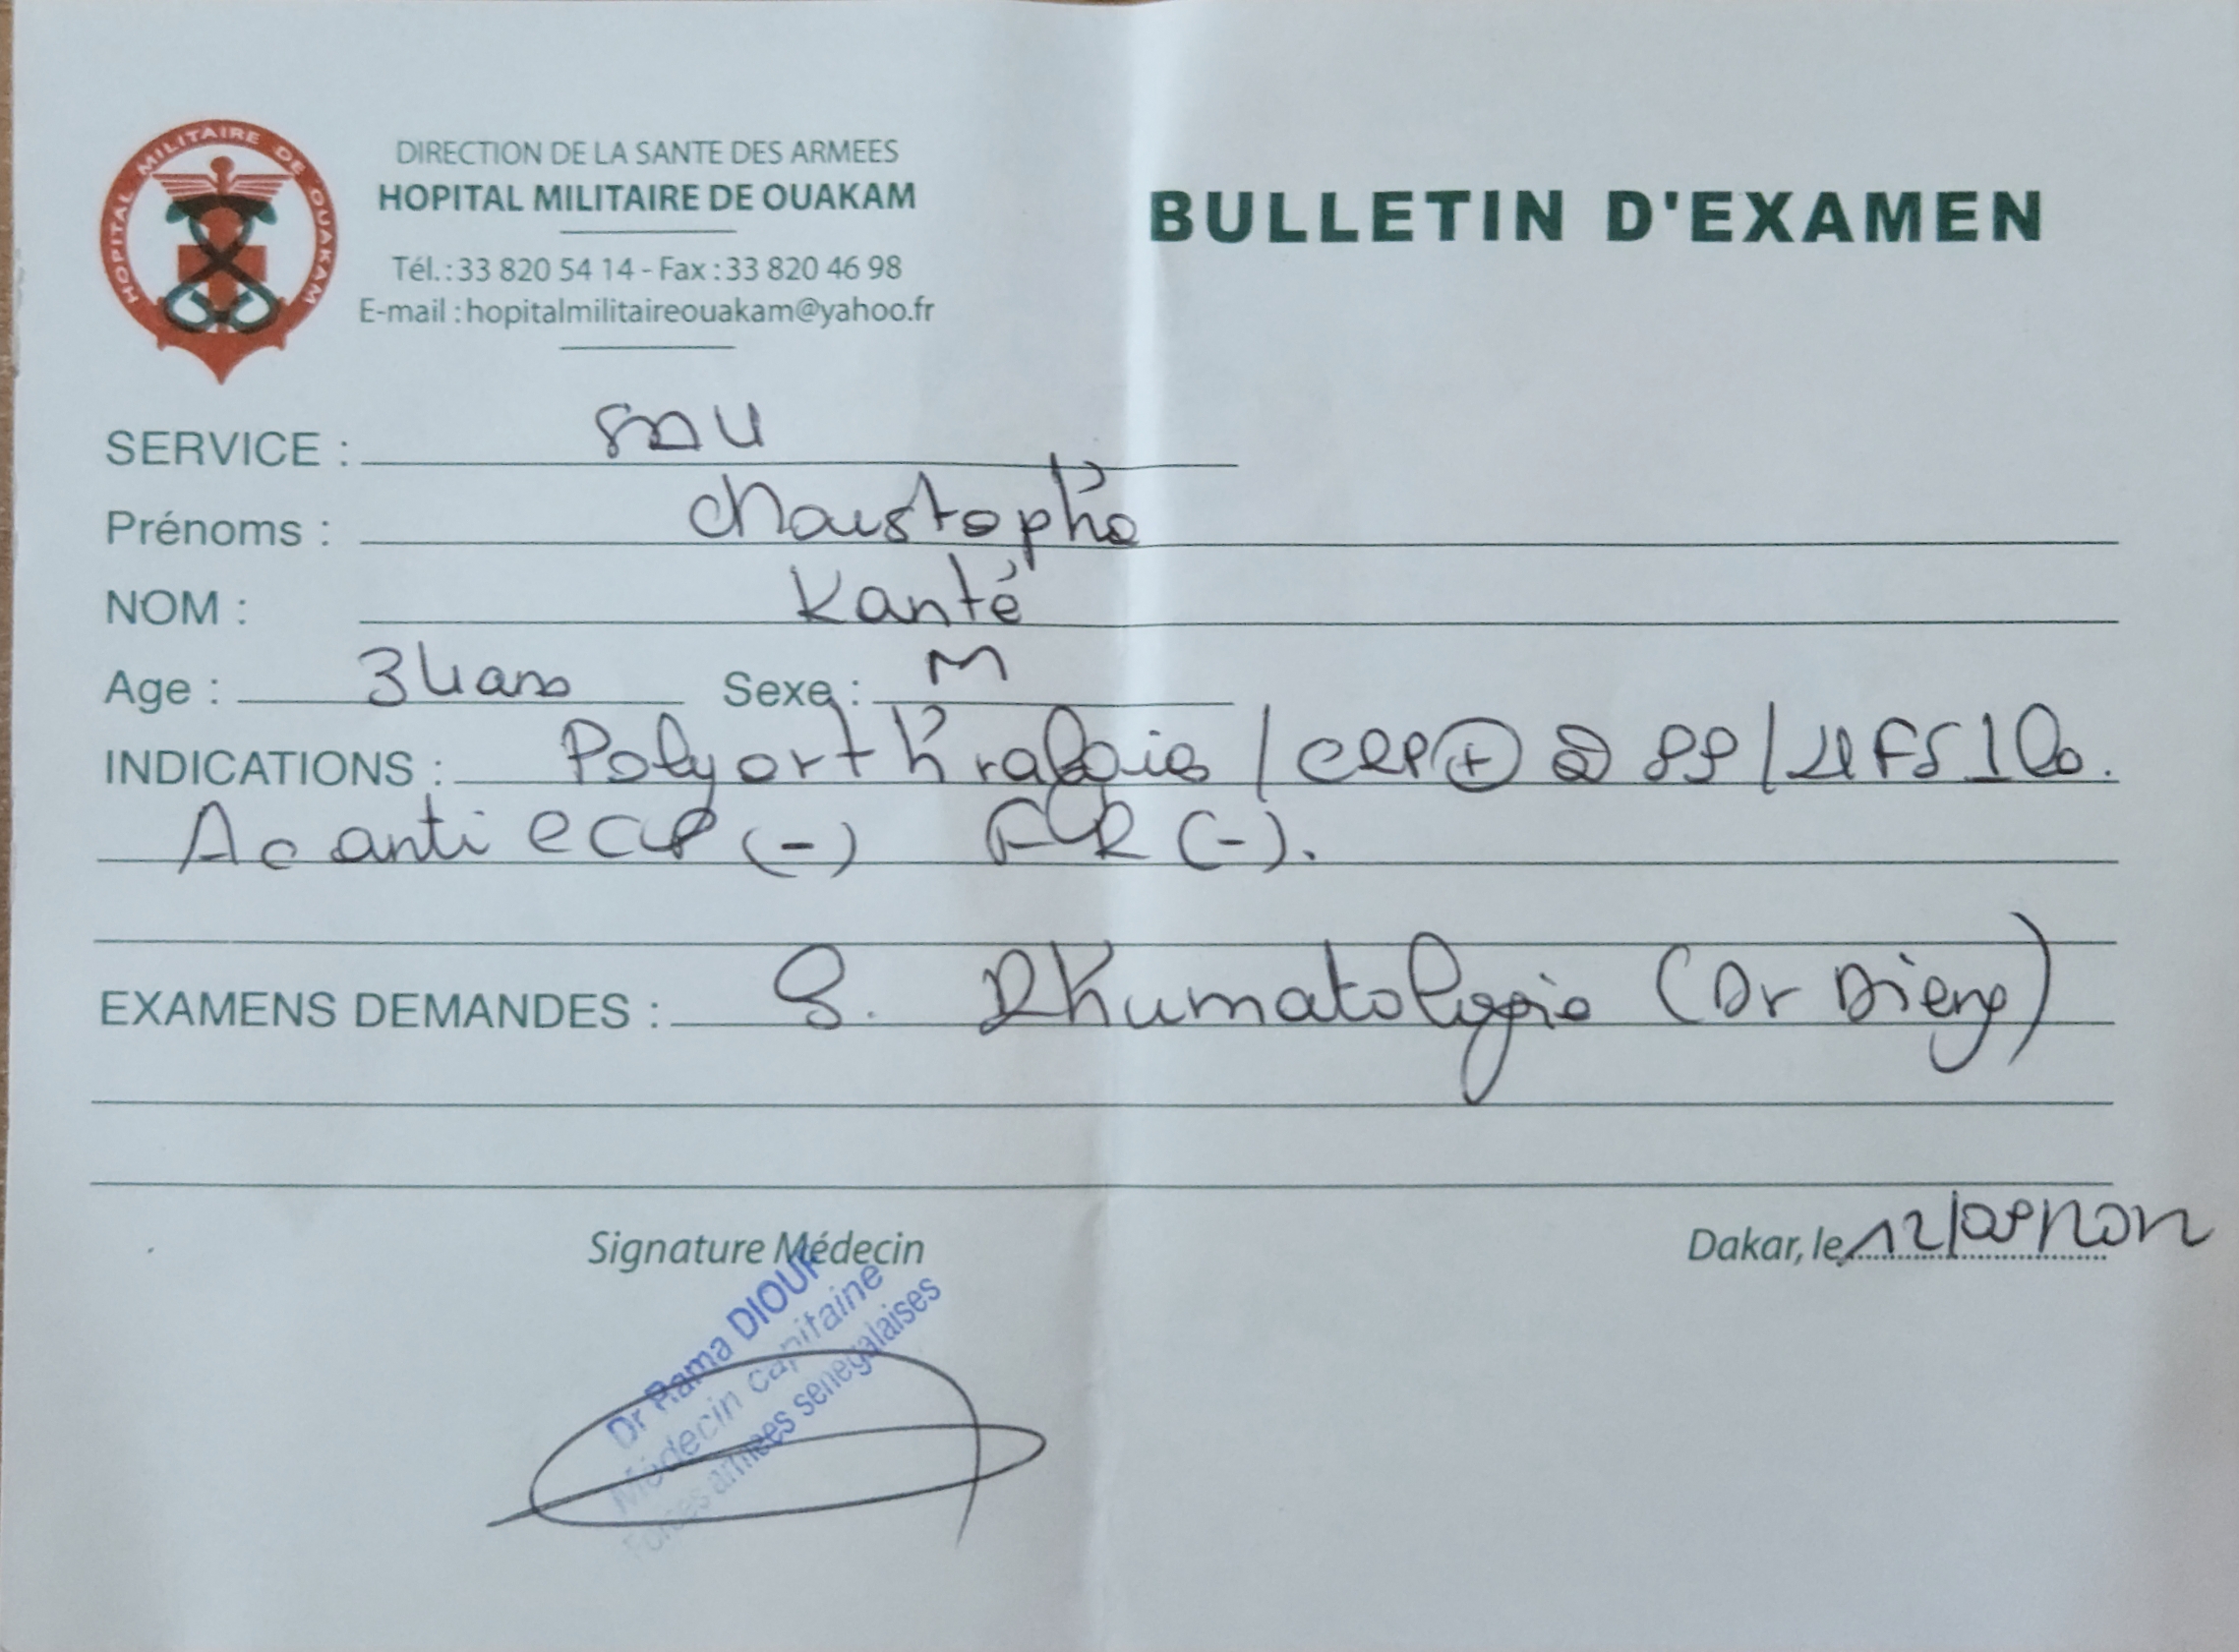 HOPITAL MILITAIRE DE OUAKAM
DIRECTION DE LA SANTE DES ARMEES
HOPITAL MILITAIRE DE OUAKAM
Tél.: 33 820 54 14 - Fax : 33 820 46 98
E-mail : hopitalmilitaireouakam@yahoo.fr
BULLETIN D'EXAMEN
SERVICE : SAU
Prénoms : Christophe
NOM : Kanté
Age : 34 ans Sexe : M
INDICATIONS : Polyarthralgie / CRP (+) à
Ac anti CCP (-) FR (-).
EXAMENS DEMANDES : S. Rhumatologie (Dr Dieng)
Signature Médecin
Dakar, le 12/
Dr Rama DIOUF
Médecin capitaine
Forces armées sénégalaises